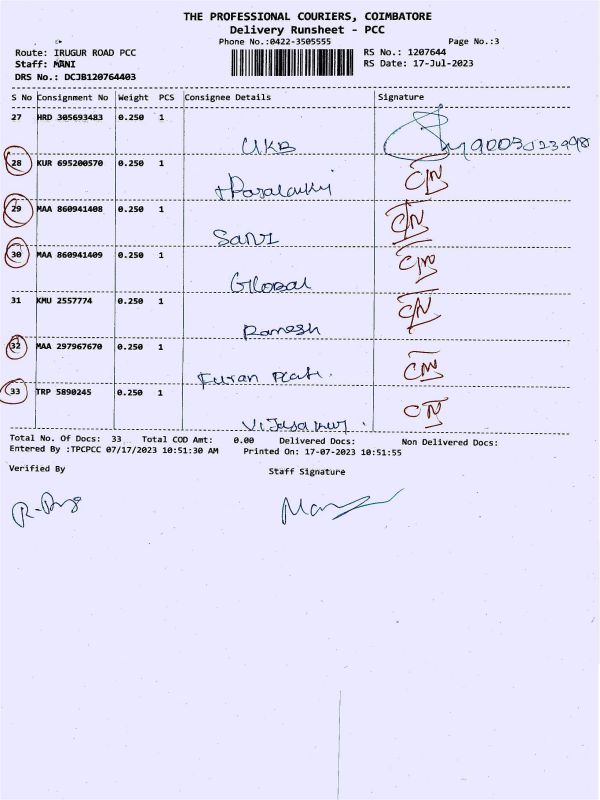 THE PROFESSIONAL COURIERS, COIMBATORE
Delivery Runsheet - PCC
Phone No.:0422-3505555 Page No.:3
Route: IRUGUR ROAD PCC RS No.: 1207644
Staff: MANI RS Date: 17-Jul-2023
DRS No.: DCJB120764403
S No Consignment No Weight PCS Consignee Details Signature
27 HRD 305693483 0.250 1
UKB 9003023998
28 KUR 695200570 0.250 1
29 MAA 860941408 0.250 1
SANI
30 MAA 860941409 0.250 1
Global
31 KMU 2557774 0.250 1
Ramesh
32 MAA 297967670 0.250 1
33 TRP 5890245 0.250 1
Total No. Of Docs: 33 Total COD Amt: 0.00 Delivered Docs: Non Delivered Docs:
Entered By :TPCPCC 07/17/2023 10:51:30 AM Printed On: 17-07-2023 10:51:55
Verified By Staff Signature